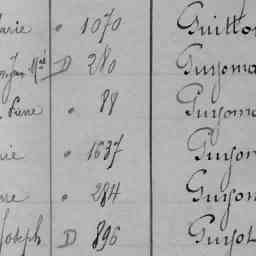 arie " 1070 Guillo
D 280 Guyoma
Pierre " 88 Guyoma
rie " 1637 Guyon
rre " 284 Guyon
Joseph D 896 Guyot